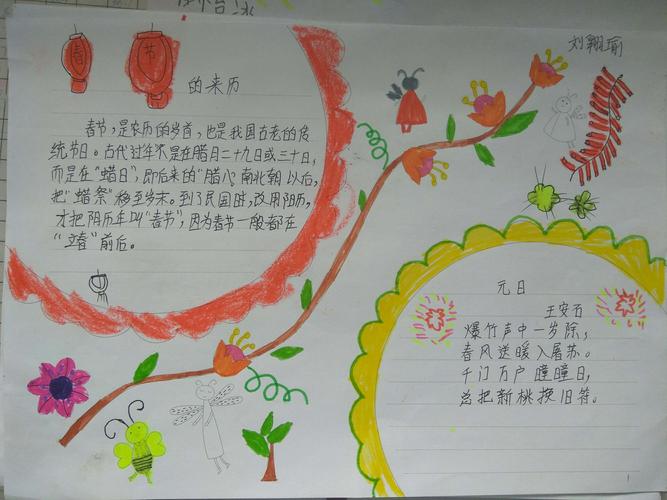 刘翔瑜
春节
的来历
春节，是农历的岁首，也是我国古老的传
统节日。古代过年不是在腊月二十九日或三十日，
而是在“蜡日”，即后来的“腊八”南北朝以后，
把“蜡祭”移至岁末。到了民国时，改用阳历，
才把阴历年叫“春节”，因为春节一般都在
“立春”前后。
元日
王安石
爆竹声中一岁除，
春风送暖入屠苏。
千门万户瞳瞳日，
总把新桃换旧符。